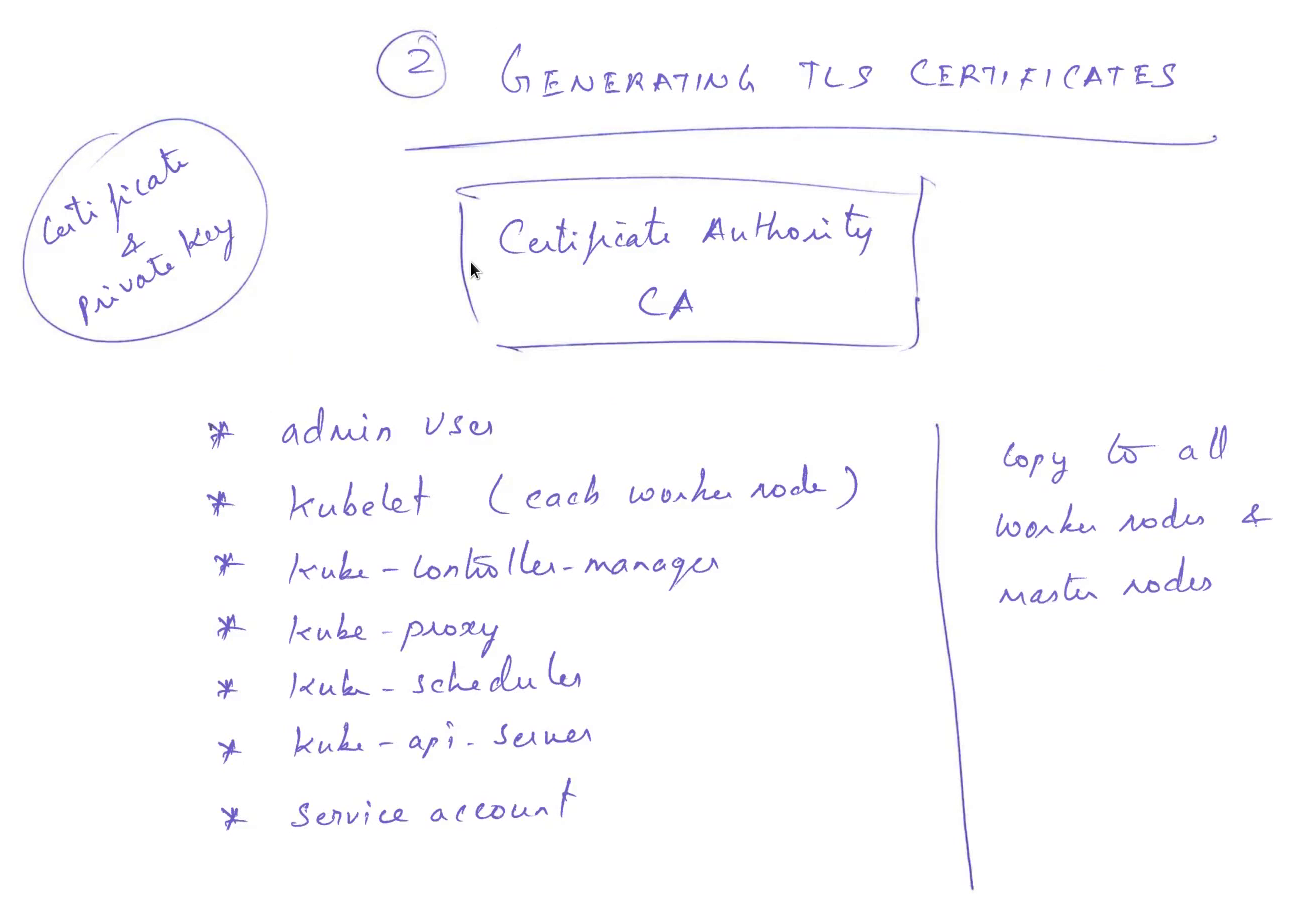 2 GENERATING TLS CERTIFICATES
Certificate
&
private key
Certificate Authority
CA
* admin user
* kubelet (each worker node)
* kube-controller-manager
* kube-proxy
* kube-scheduler
* kube-api-server
* service account
copy to all
worker nodes &
master nodes